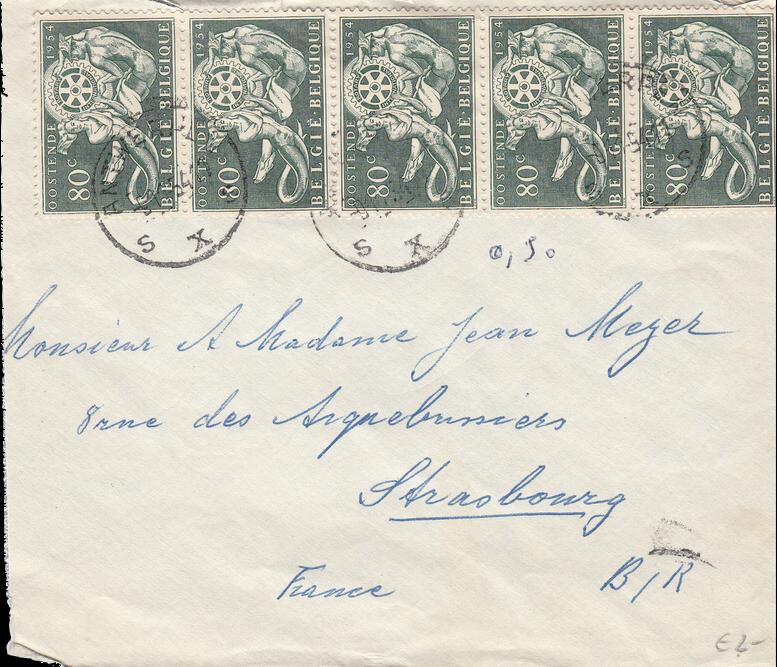 1954 OOSTENDE 80c BELGIË-BELGIQUE
1954 OOSTENDE 80c BELGIË-BELGIQUE
1954 OOSTENDE 80c BELGIË-BELGIQUE
1954 OOSTENDE 80c BELGIË-BELGIQUE
1954 OOSTENDE 80c BELGIË-BELGIQUE
S X
S X
0,50
Monsieur & Madame Jean Meyer
8 rue des Arquebusiers
Strasbourg
France B/R
€2-